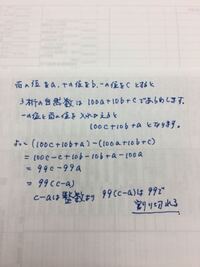 百の位をa、十の位をb、一の位をcとすると
3桁の自然数は 100a+10b+c であらわします。
一の位と百の位を入れかえると
100c+10b+a となります。
よって =(100c+10b+a)-(100a+10b+c)
=100c-c+10b-10b+a-100a
=99c-99a
=99(c-a)
c-aは整数より 99(c-a)は99で
割り切れる